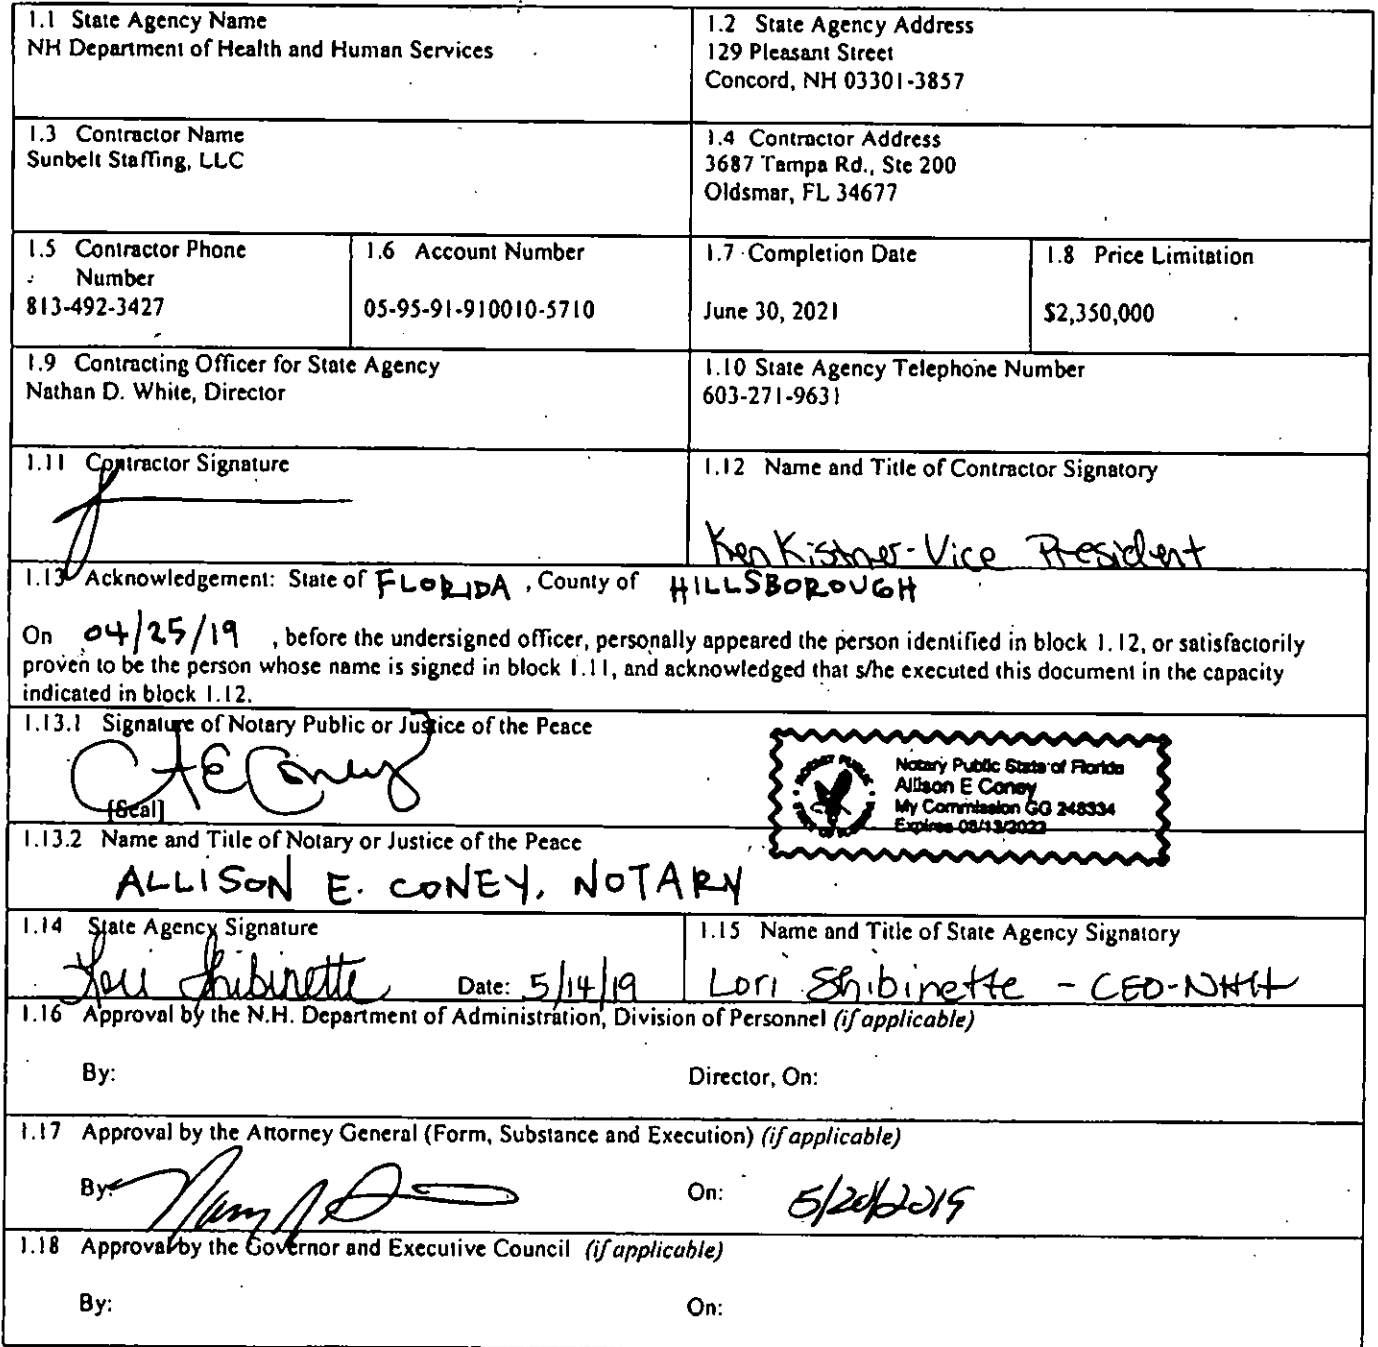 1.1 State Agency Name
NH Department of Health and Human Services
1.2 State Agency Address
129 Pleasant Street
Concord, NH 03301-3857
1.3 Contractor Name
Sunbelt Staffing, LLC
1.4 Contractor Address
3687 Tampa Rd., Ste 200
Oldsmar, FL 34677
1.5 Contractor Phone
Number
813-492-3427
1.6 Account Number
05-95-91-910010-5710
1.7 Completion Date
June 30, 2021
1.8 Price Limitation
$2,350,000
1.9 Contracting Officer for State Agency
Nathan D. White, Director
1.10 State Agency Telephone Number
603-271-9631
1.11 Contractor Signature
1.12 Name and Title of Contractor Signatory
Ken Kistner-Vice President
1.13 Acknowledgement: State of FLORIDA , County of HILLSBOROUGH
On 04/25/19 , before the undersigned officer, personally appeared the person identified in block 1.12, or satisfactorily
proven to be the person whose name is signed in block 1.11, and acknowledged that s/he executed this document in the capacity
indicated in block 1.12.
1.13.1 Signature of Notary Public or Justice of the Peace
A E Coney
[Seal]
NOTARY PUBLIC
STATE OF FLORIDA
Notary Public State of Florida
Allison E Coney
My Commission GG 248334
Expires 08/13/2022
1.13.2 Name and Title of Notary or Justice of the Peace
ALLISON E. CONEY, NOTARY
1.14 State Agency Signature
Lori Shibinette Date: 5/14/19
1.15 Name and Title of State Agency Signatory
Lori Shibinette - CEO-NHH
1.16 Approval by the N.H. Department of Administration, Division of Personnel (if applicable)
By: Director, On:
1.17 Approval by the Attorney General (Form, Substance and Execution) (if applicable)
By: On: 5/20/2019
1.18 Approval by the Governor and Executive Council (if applicable)
By: On: